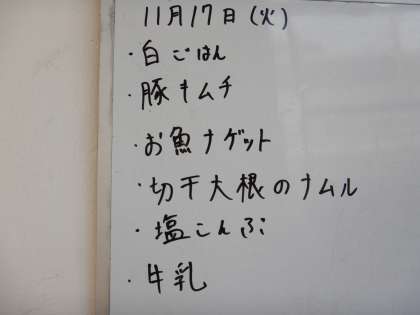 11月17日(火)
・白ごはん
・豚キムチ
・お魚ナゲット
・切干大根のナムル
・塩こんぶ
・牛乳